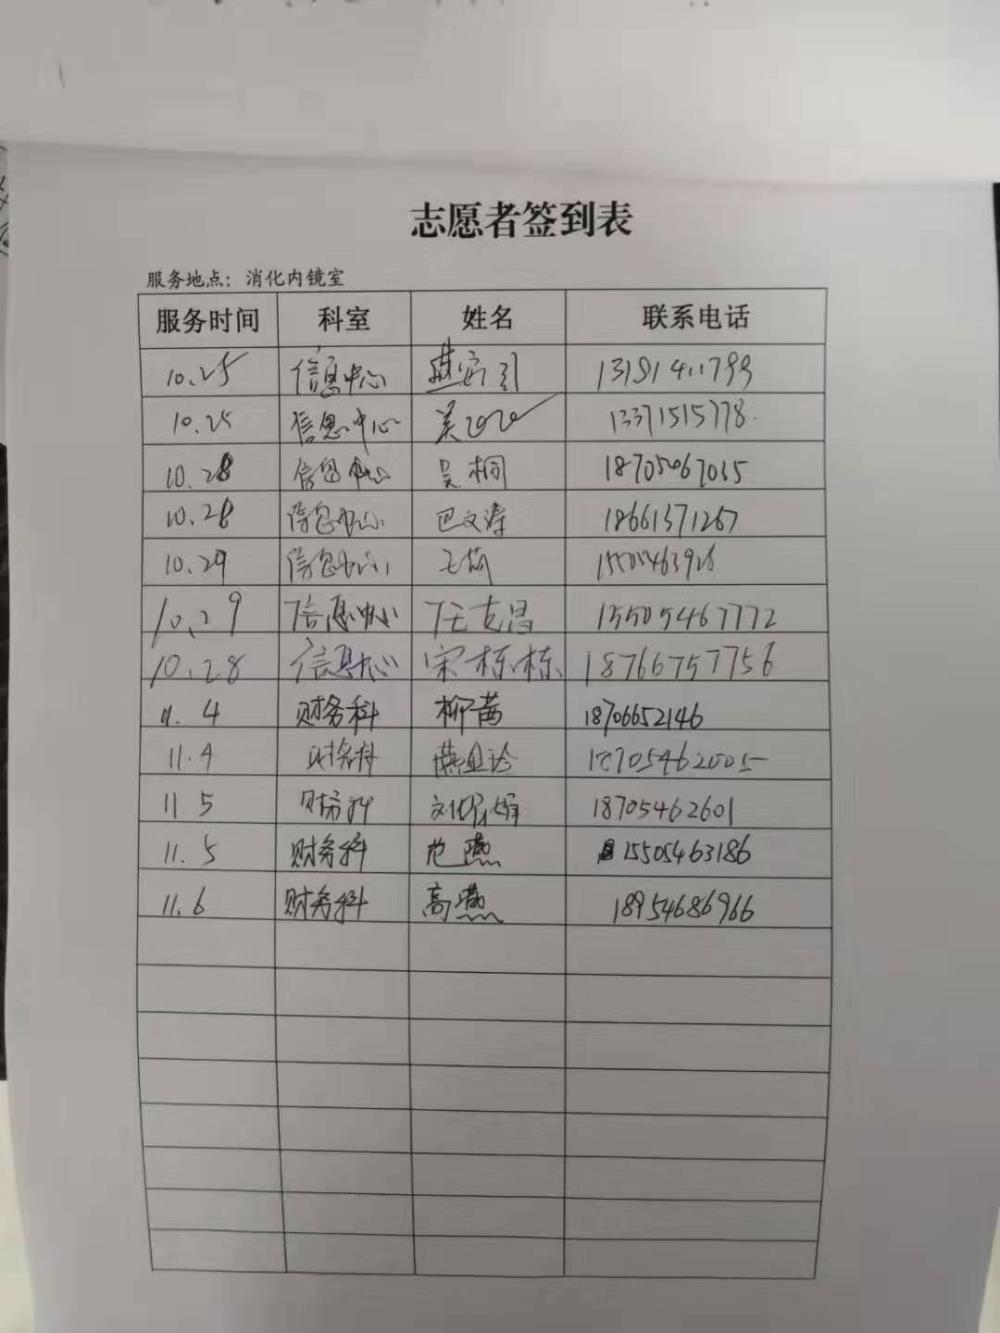 志愿者签到表
服务地点：消化内镜室
服务时间 科室 姓名 联系电话
10.25 信息中心
10.25 信息中心 13371515778.
10.28 信息中心 吴桐 18705067035
10.28 信息中心 巴文涛 18661371267
10.29 信息中心 15505463926
10.29 信息中心 任克昌 15505467772
10.28 信息中心 宋栋栋 18766757756
11.4 财务科 柳茜 18706652146
11.4 财务科 18705462005
11.5 财务科 18705462601
11.5 财务科 范燕 15505463186
11.6 财务科 高燕 18954686966